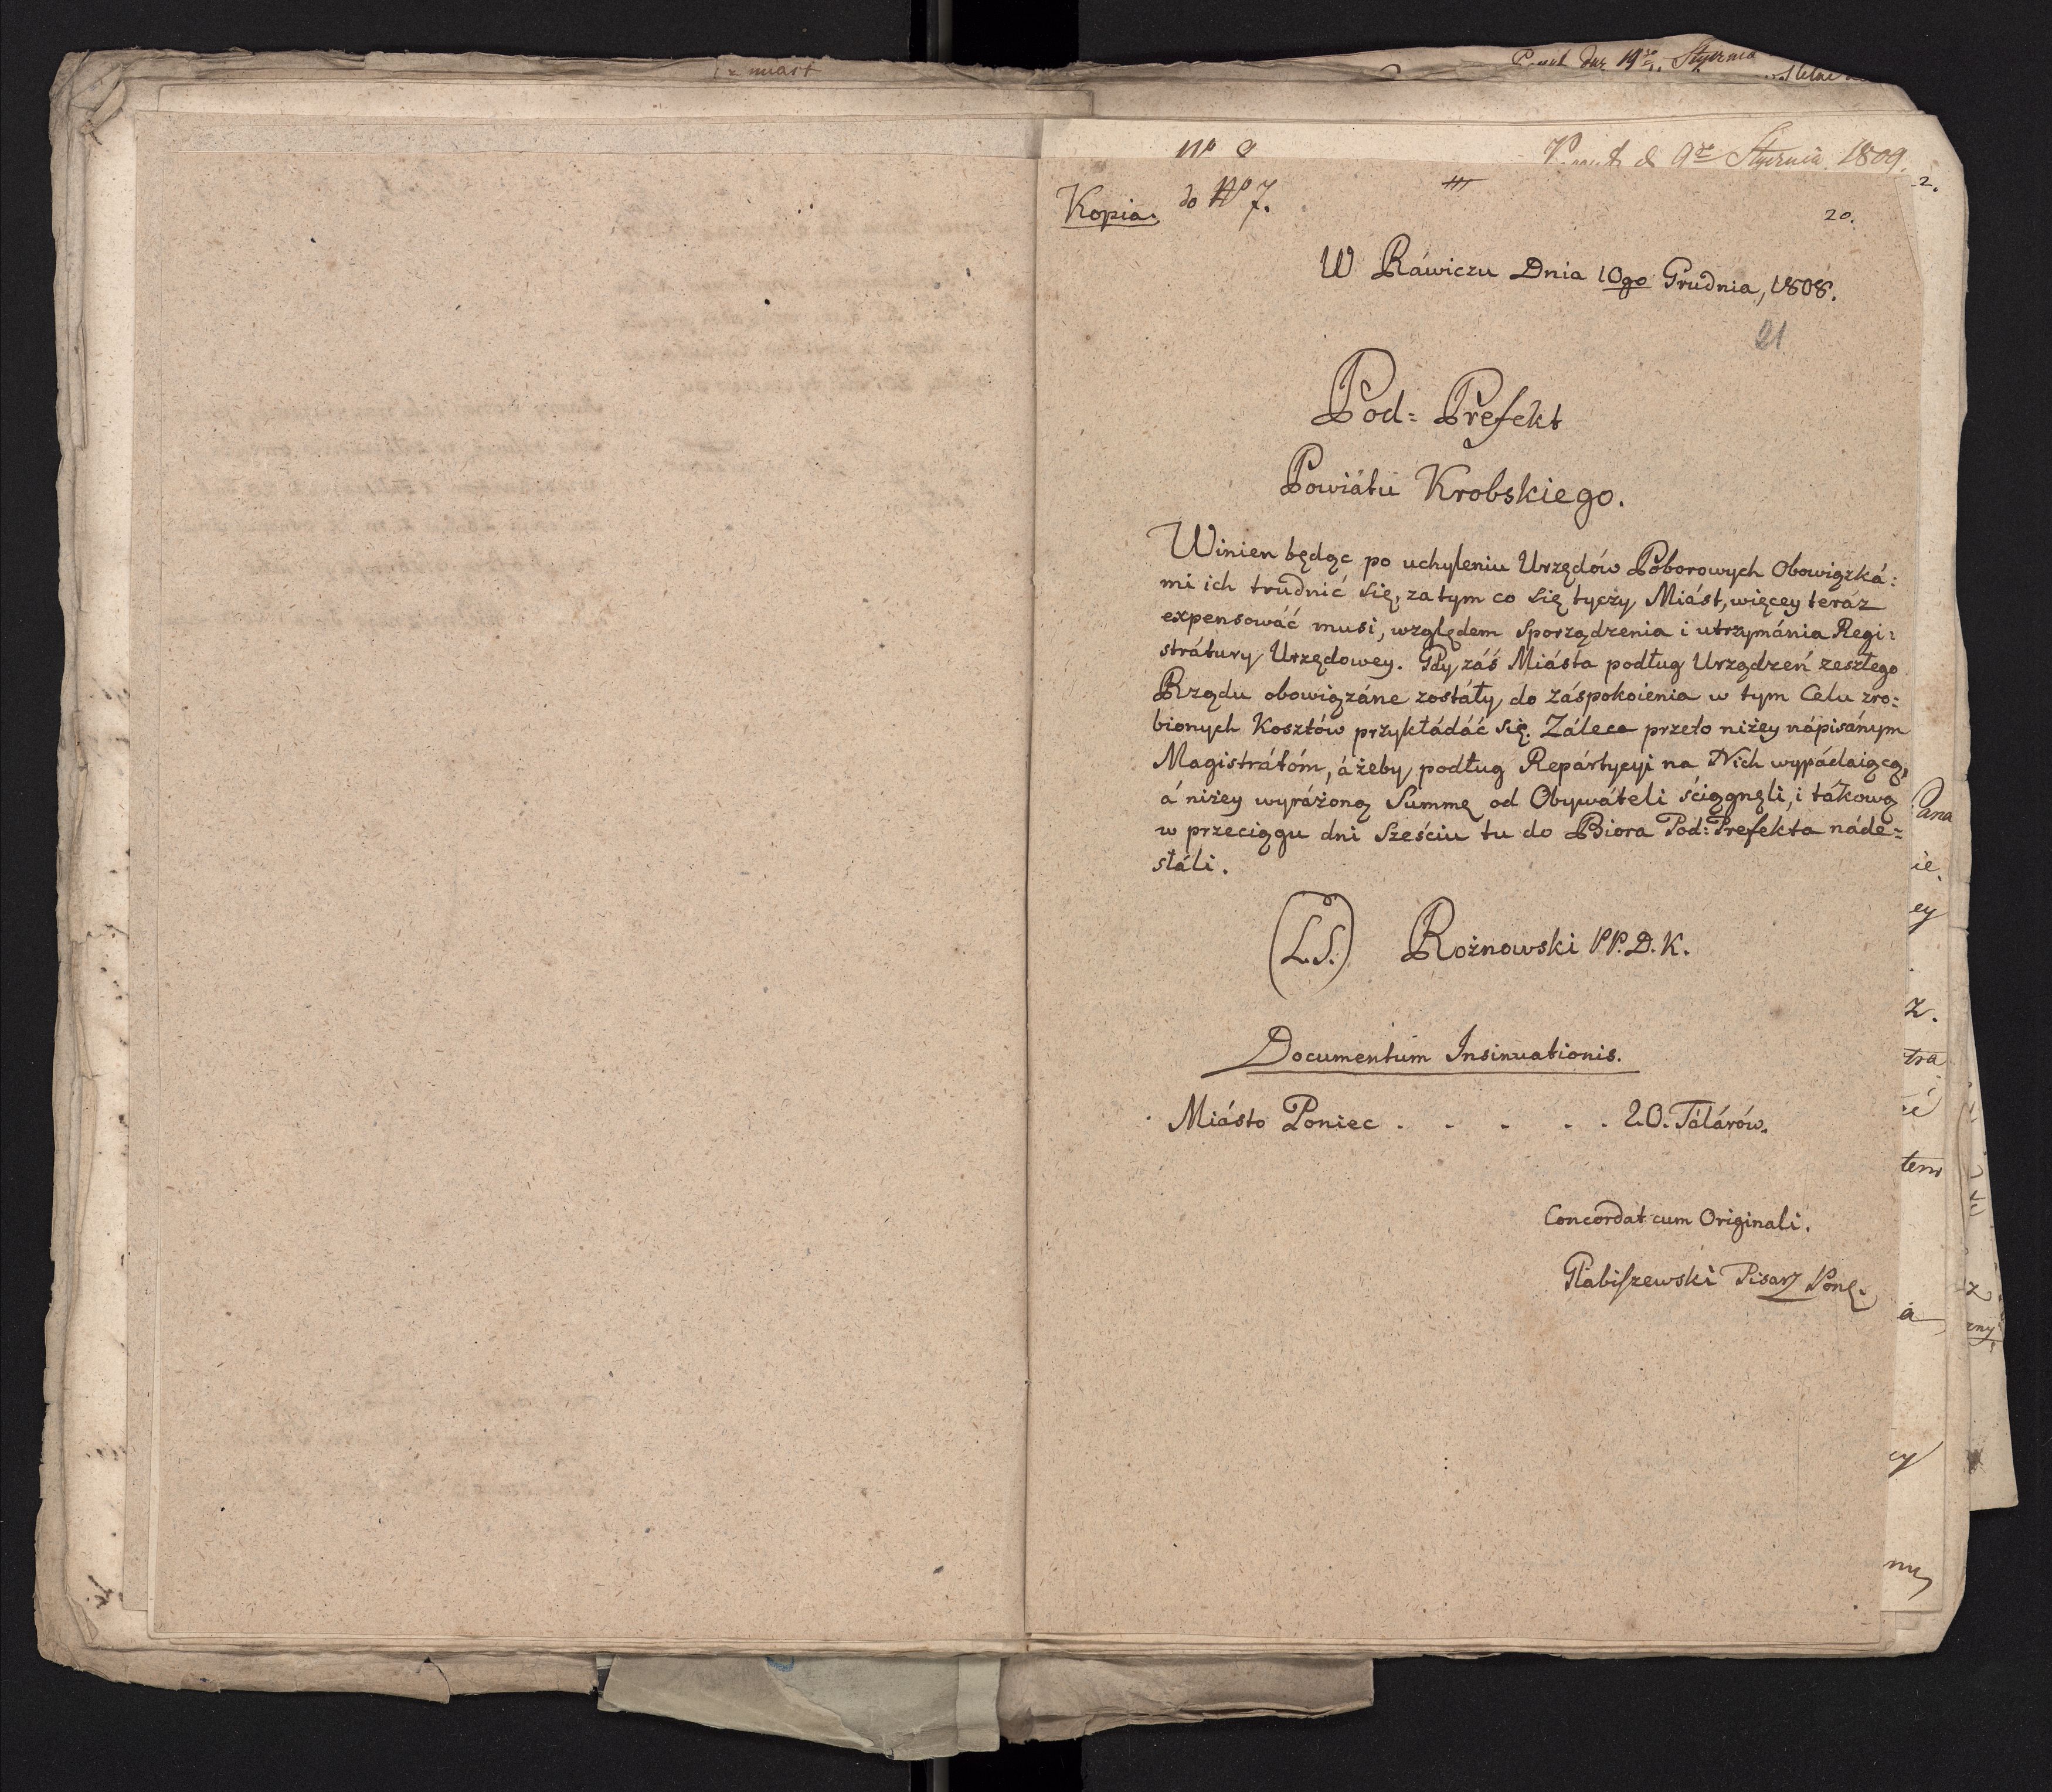 z miast
19go Stycznia
No
d 9go Stycznia 1809.
2.
Kopia. do No 7.
20.
W Ráwiczu Dnia 10go Grudnia, 1808.
21
Pod= Prefekt
Powiátu Krobskiego.
Winien będąc po uchyleniu Urzędów Poborowych Obowiązká:
mi ich trudnić się, za tym co się tyczy Miást, więcey teráz
expensowáć musi, względem Sporządzenia i utrzymánia Regi:
strátury Urzędowey. Gdy záś Miásta podług Urządzeń zeszłego
Rządu obowiązáne zostáły, do záspokoienia w tym Celu zro:
bionych Kosztów przykłádáć się. Záleca przeto niżey nápisánym
Magistrátóm, áżeby podług Repártycyi na Nich wypádaiącą,
á niżey wyráżoną Summę od Obywáteli ściągnęli, i tákową
w przeciągu dni Sześciu tu do Biora Pod: Prefekta náde=
słáli.
(L.S.) Rożnowski PP.D.K.
Documentum Insinuationis.
Miásto Poniec . . . . . 20. Tálárów.
Concordat cum Originali.
Pisarz
Pana
ie.
ey
z.
tra
tem
a
cy